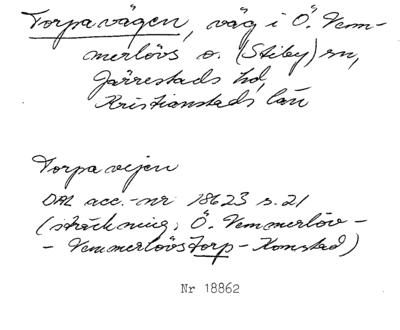 Torpavägen, väg i Ö. Vem-
merlövs o. (Stiby) sn,
Järrestads hd,
Kristianstads län
Torpavejen
DAL acc.-nr 18623 s. 21
(sträckning: Ö. Vemmerlöv -
- Vemmerlövstorp - Komstad)
Nr 18862